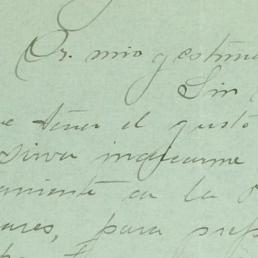 Sr. mio y estima
Sin
e tener el gusto
sirva indicarme
amente en la
ares, para